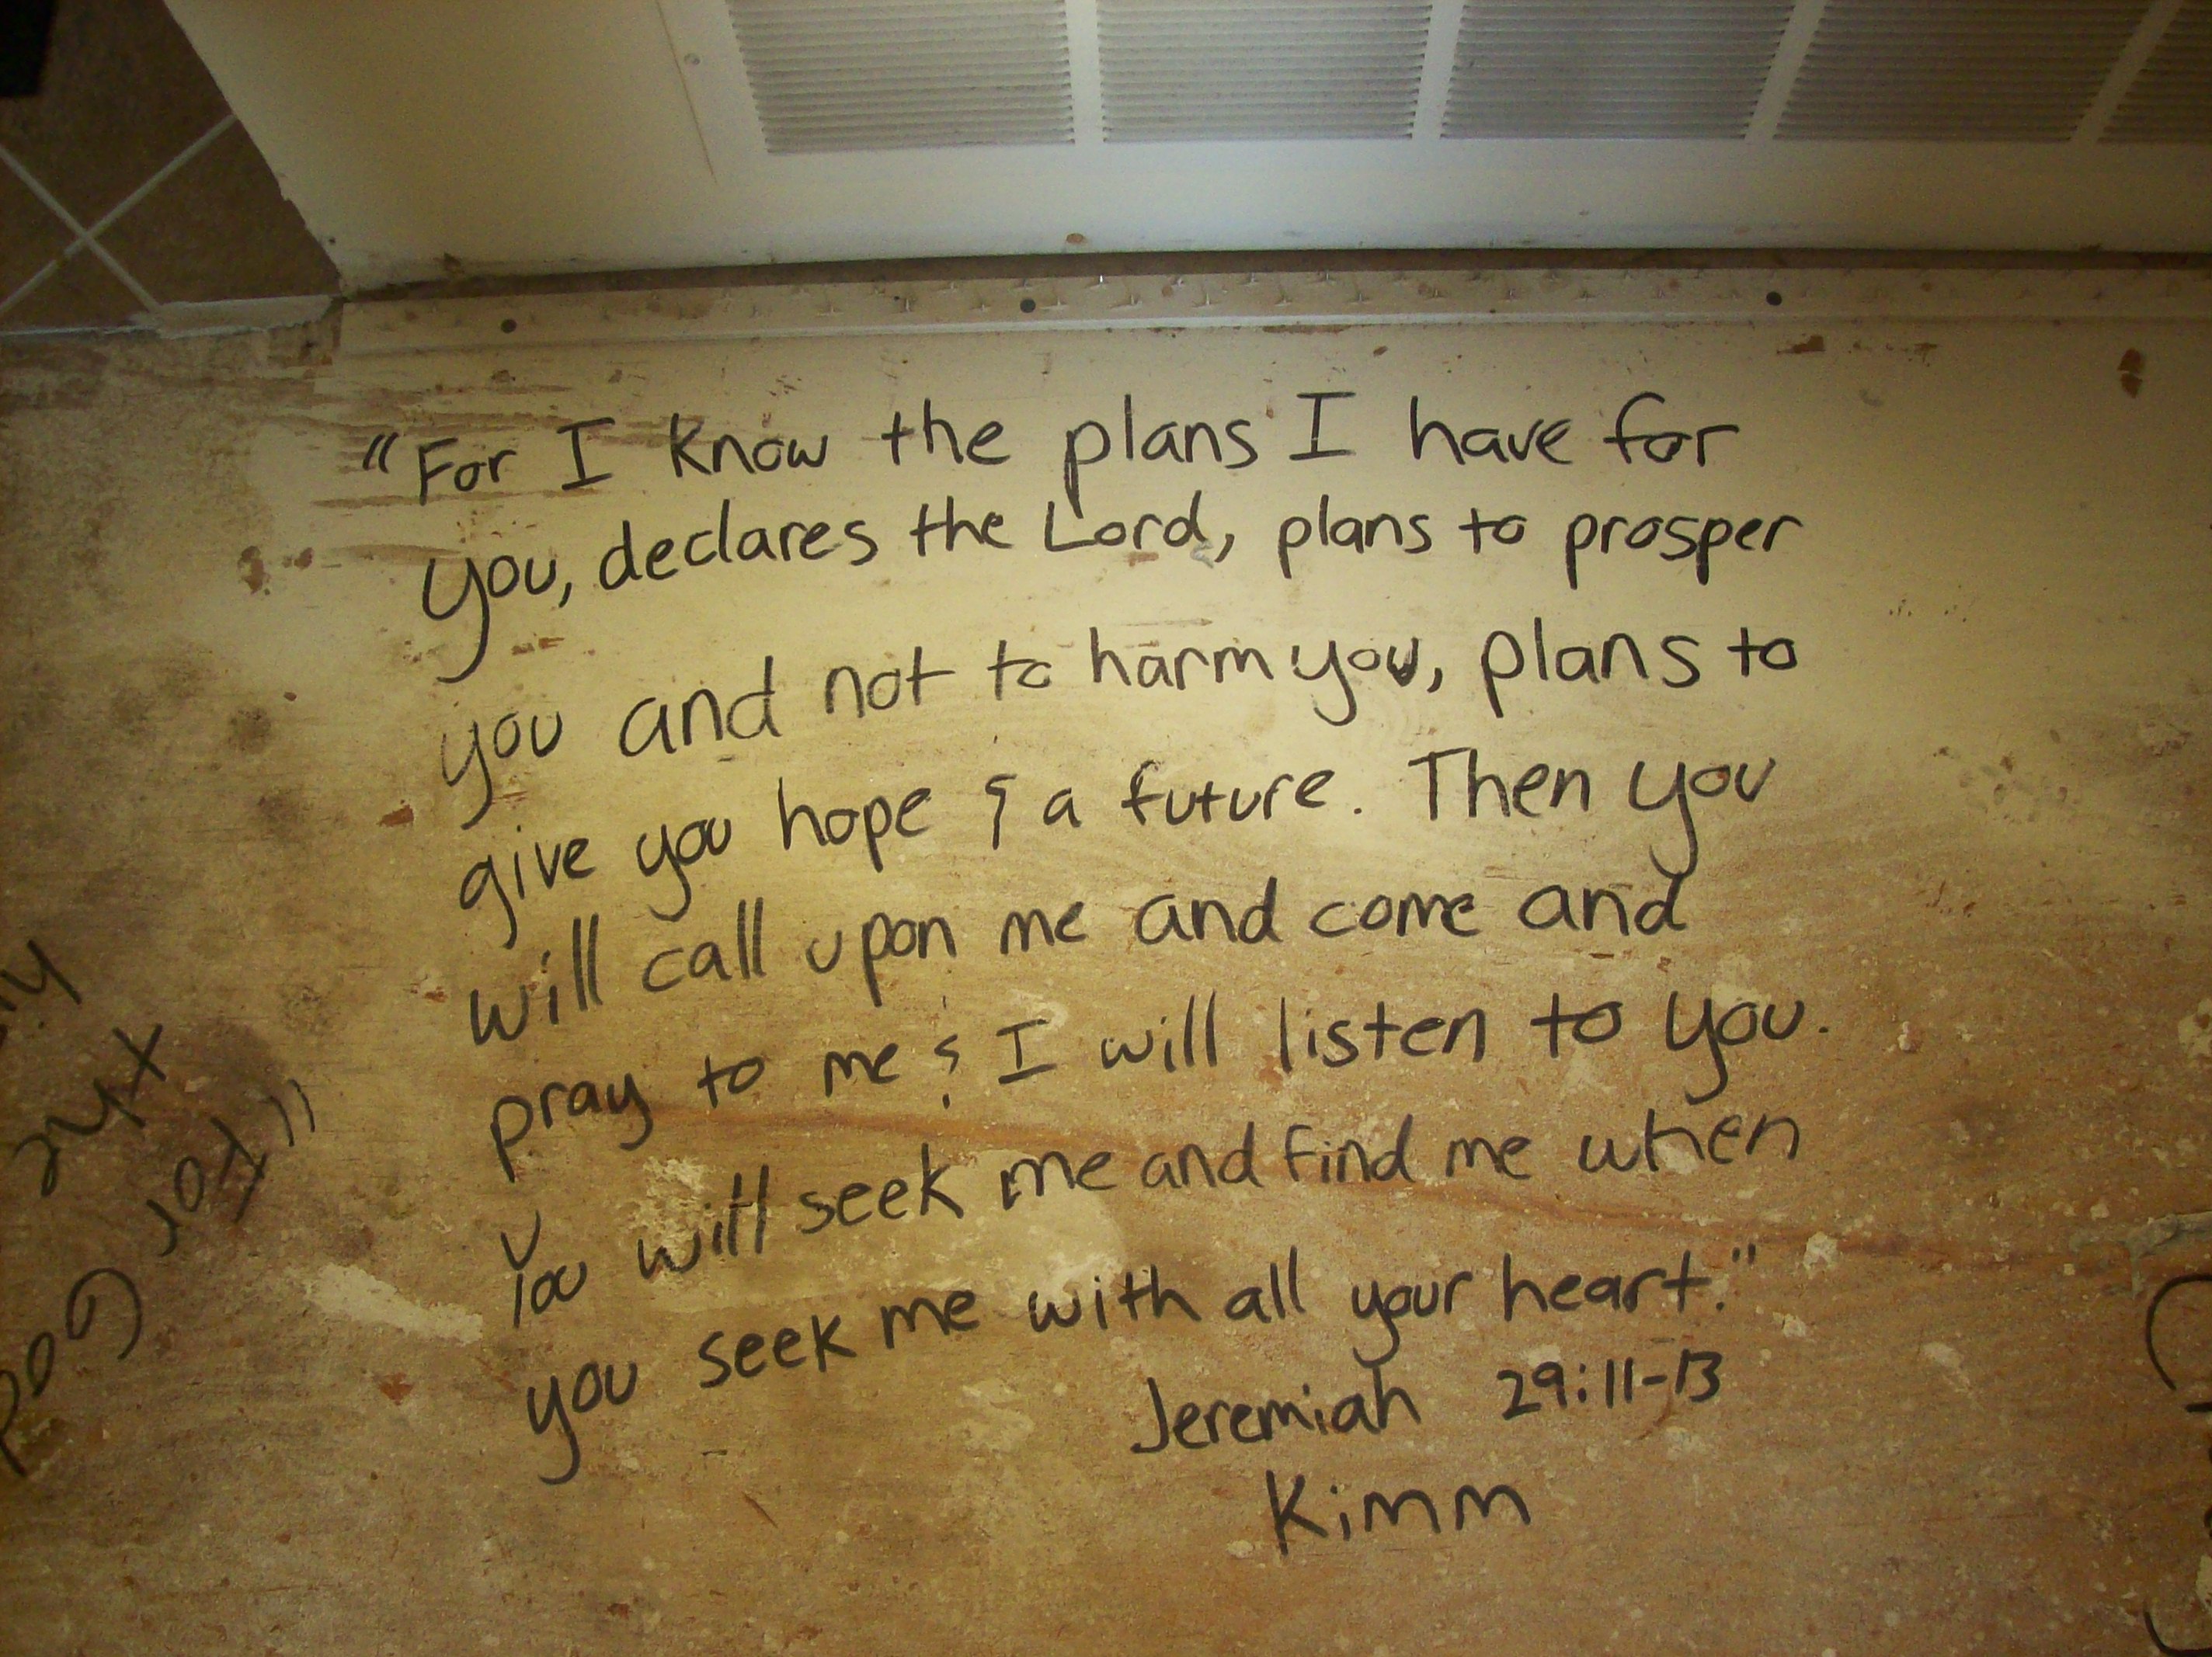 "For I know the plans I have for
you, declares the Lord, plans to prosper
you and not to harm you, plans to
give you hope & a future. Then you
will call upon me and come and
pray to me & I will listen to you.
You will seek me and find me when
you seek me with all your heart."
Jeremiah 29:11-13
Kimm
"For God
the